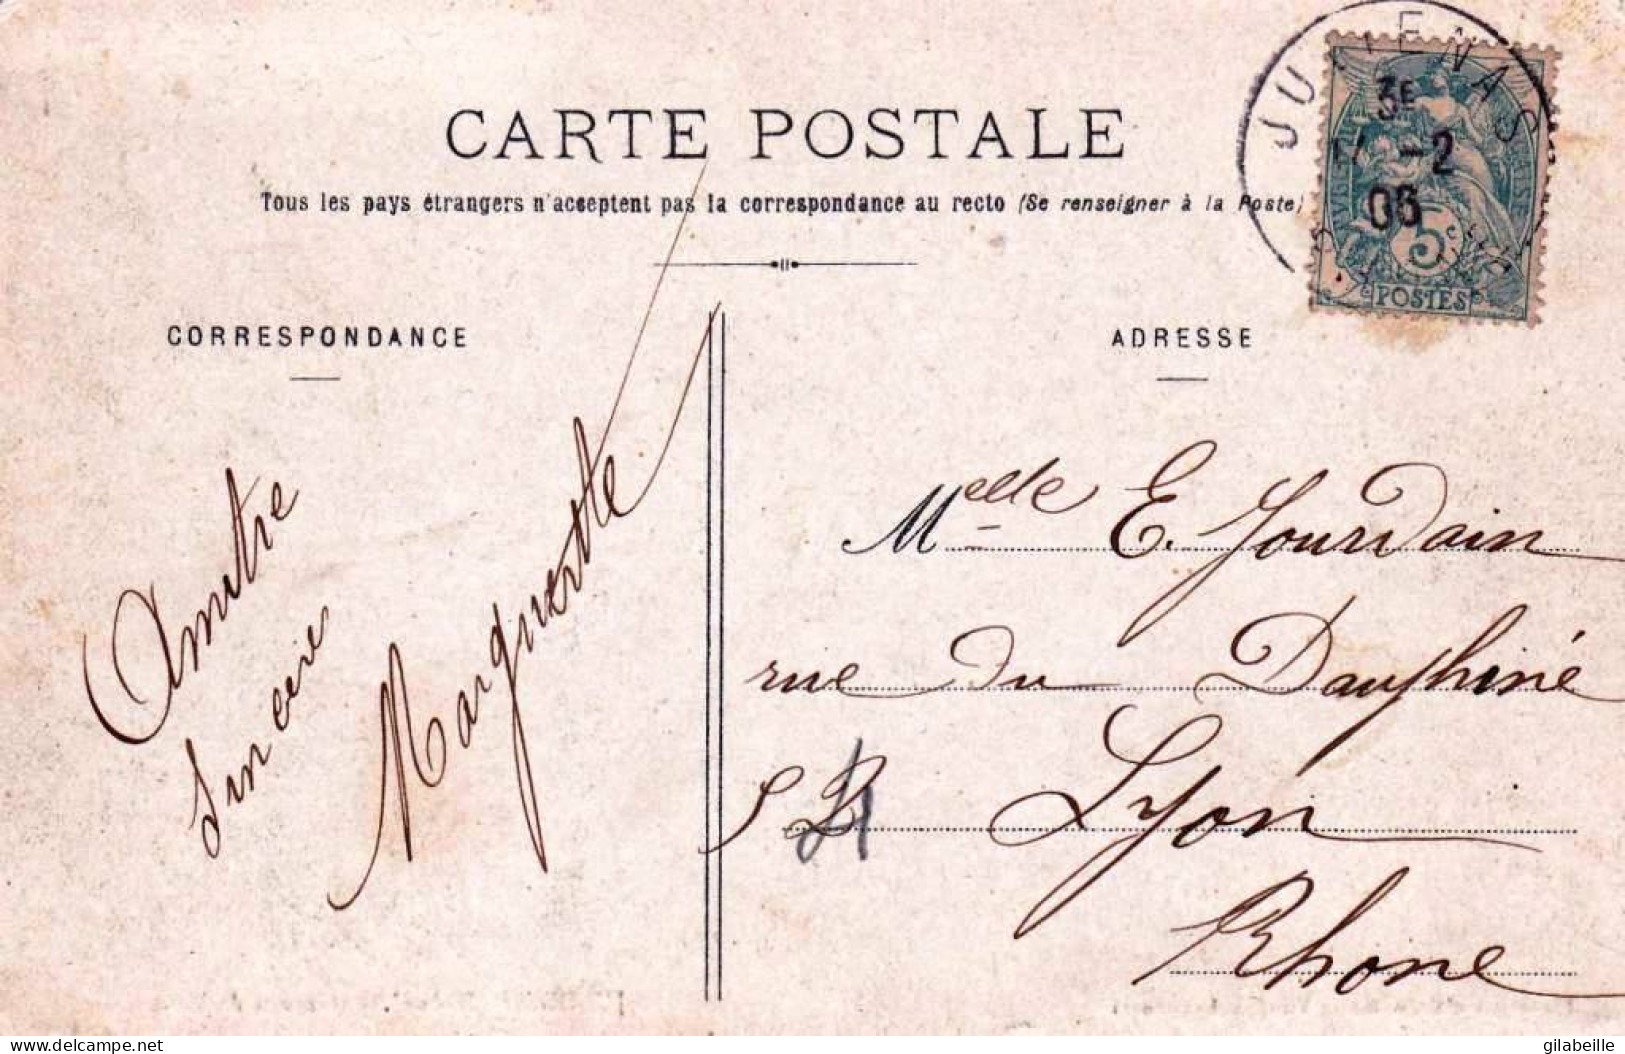 CARTE POSTALE
Tous les pays étrangers n'acceptent pas la correspondance au recto (Se renseigner à la Poste)
CORRESPONDANCE
ADRESSE
JULIENAS
3E
-2
06
5c
POSTES
Amitié
Sincère
Marguerite
Melle E. Jourdain
rue du Dauphiné
Lyon
Rhone
delcampe.net
gilabeille